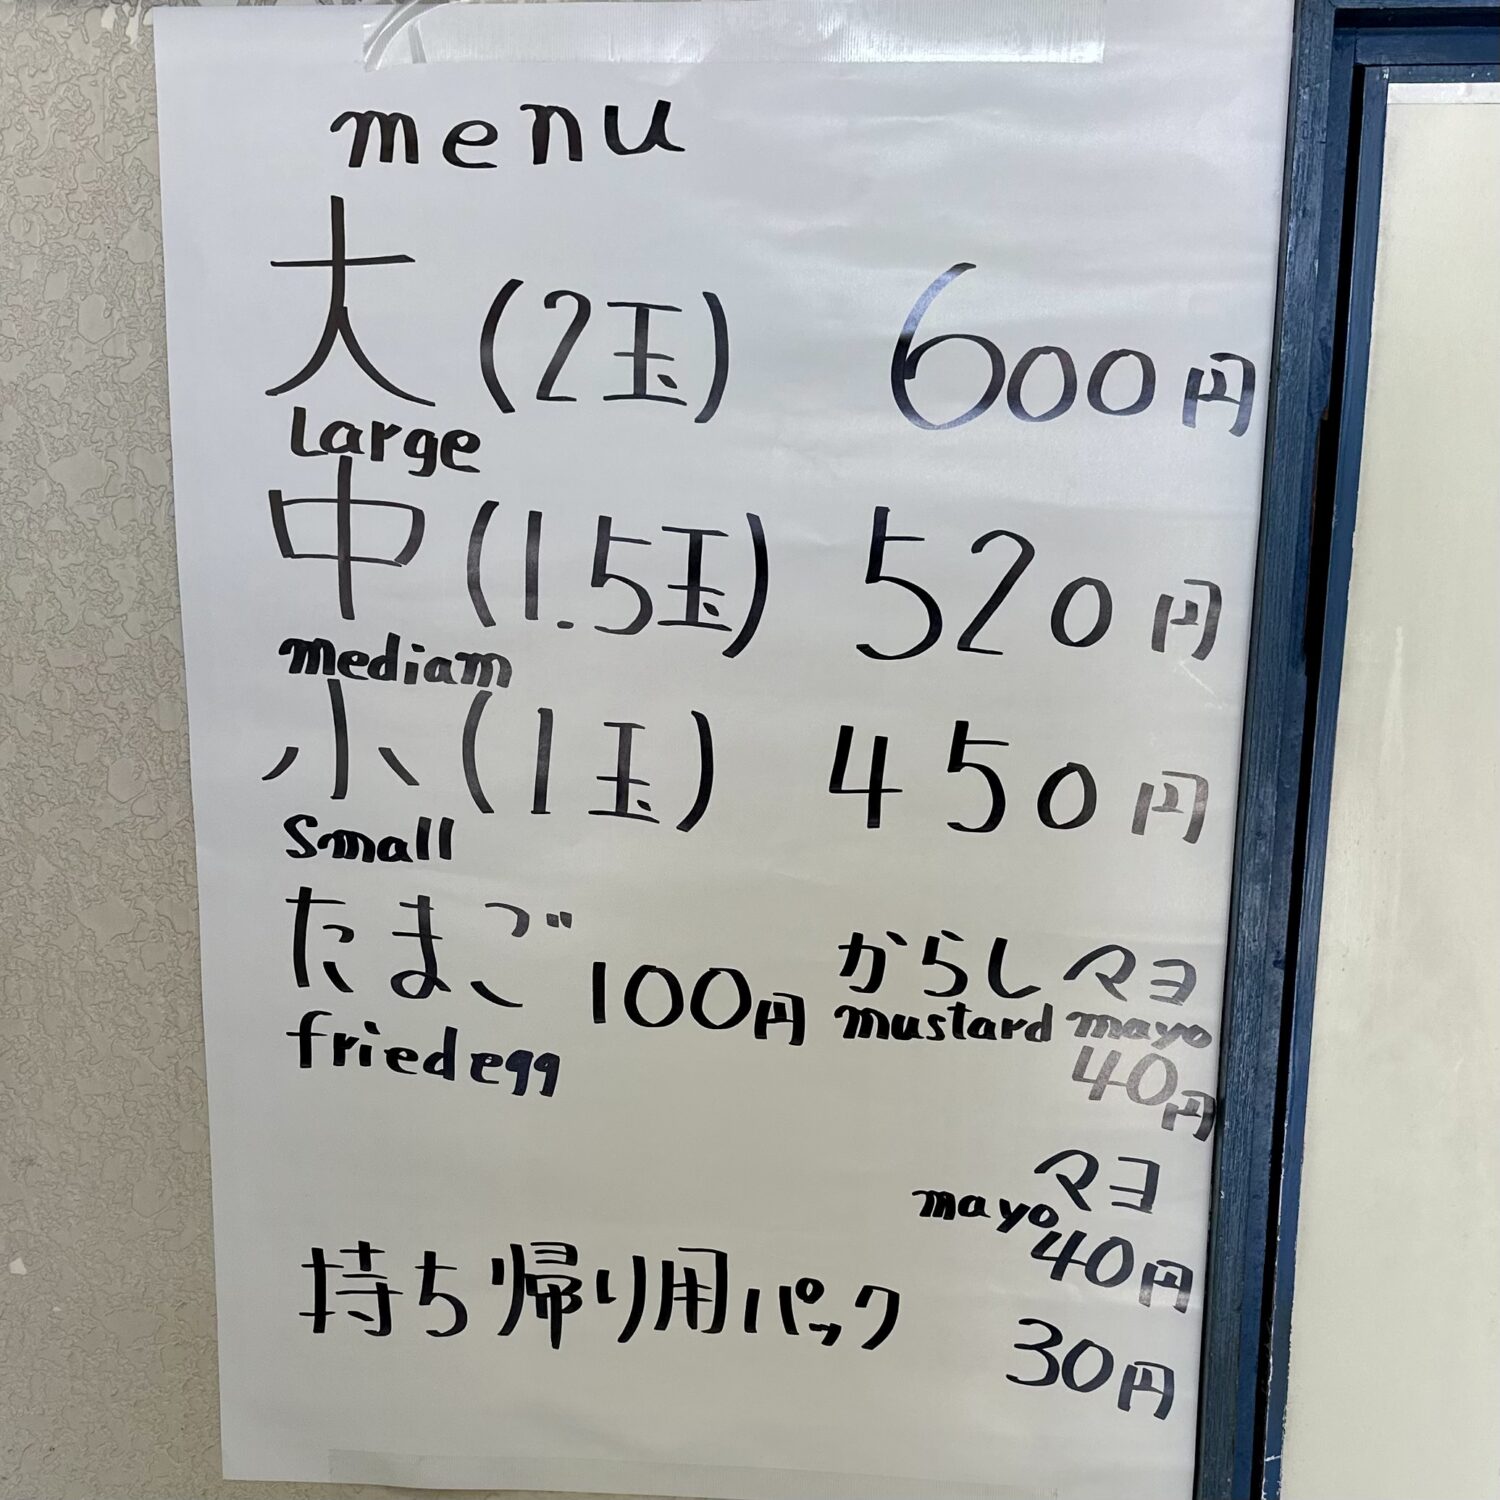 menu
大(2玉) 600円
Large
中(1.5玉) 520円
mediam
小(1玉) 450円
small
たまご 100円 からしマヨ
friedegg mustard mayo
40円
マヨ
mayo 40円
持ち帰り用パック 30円